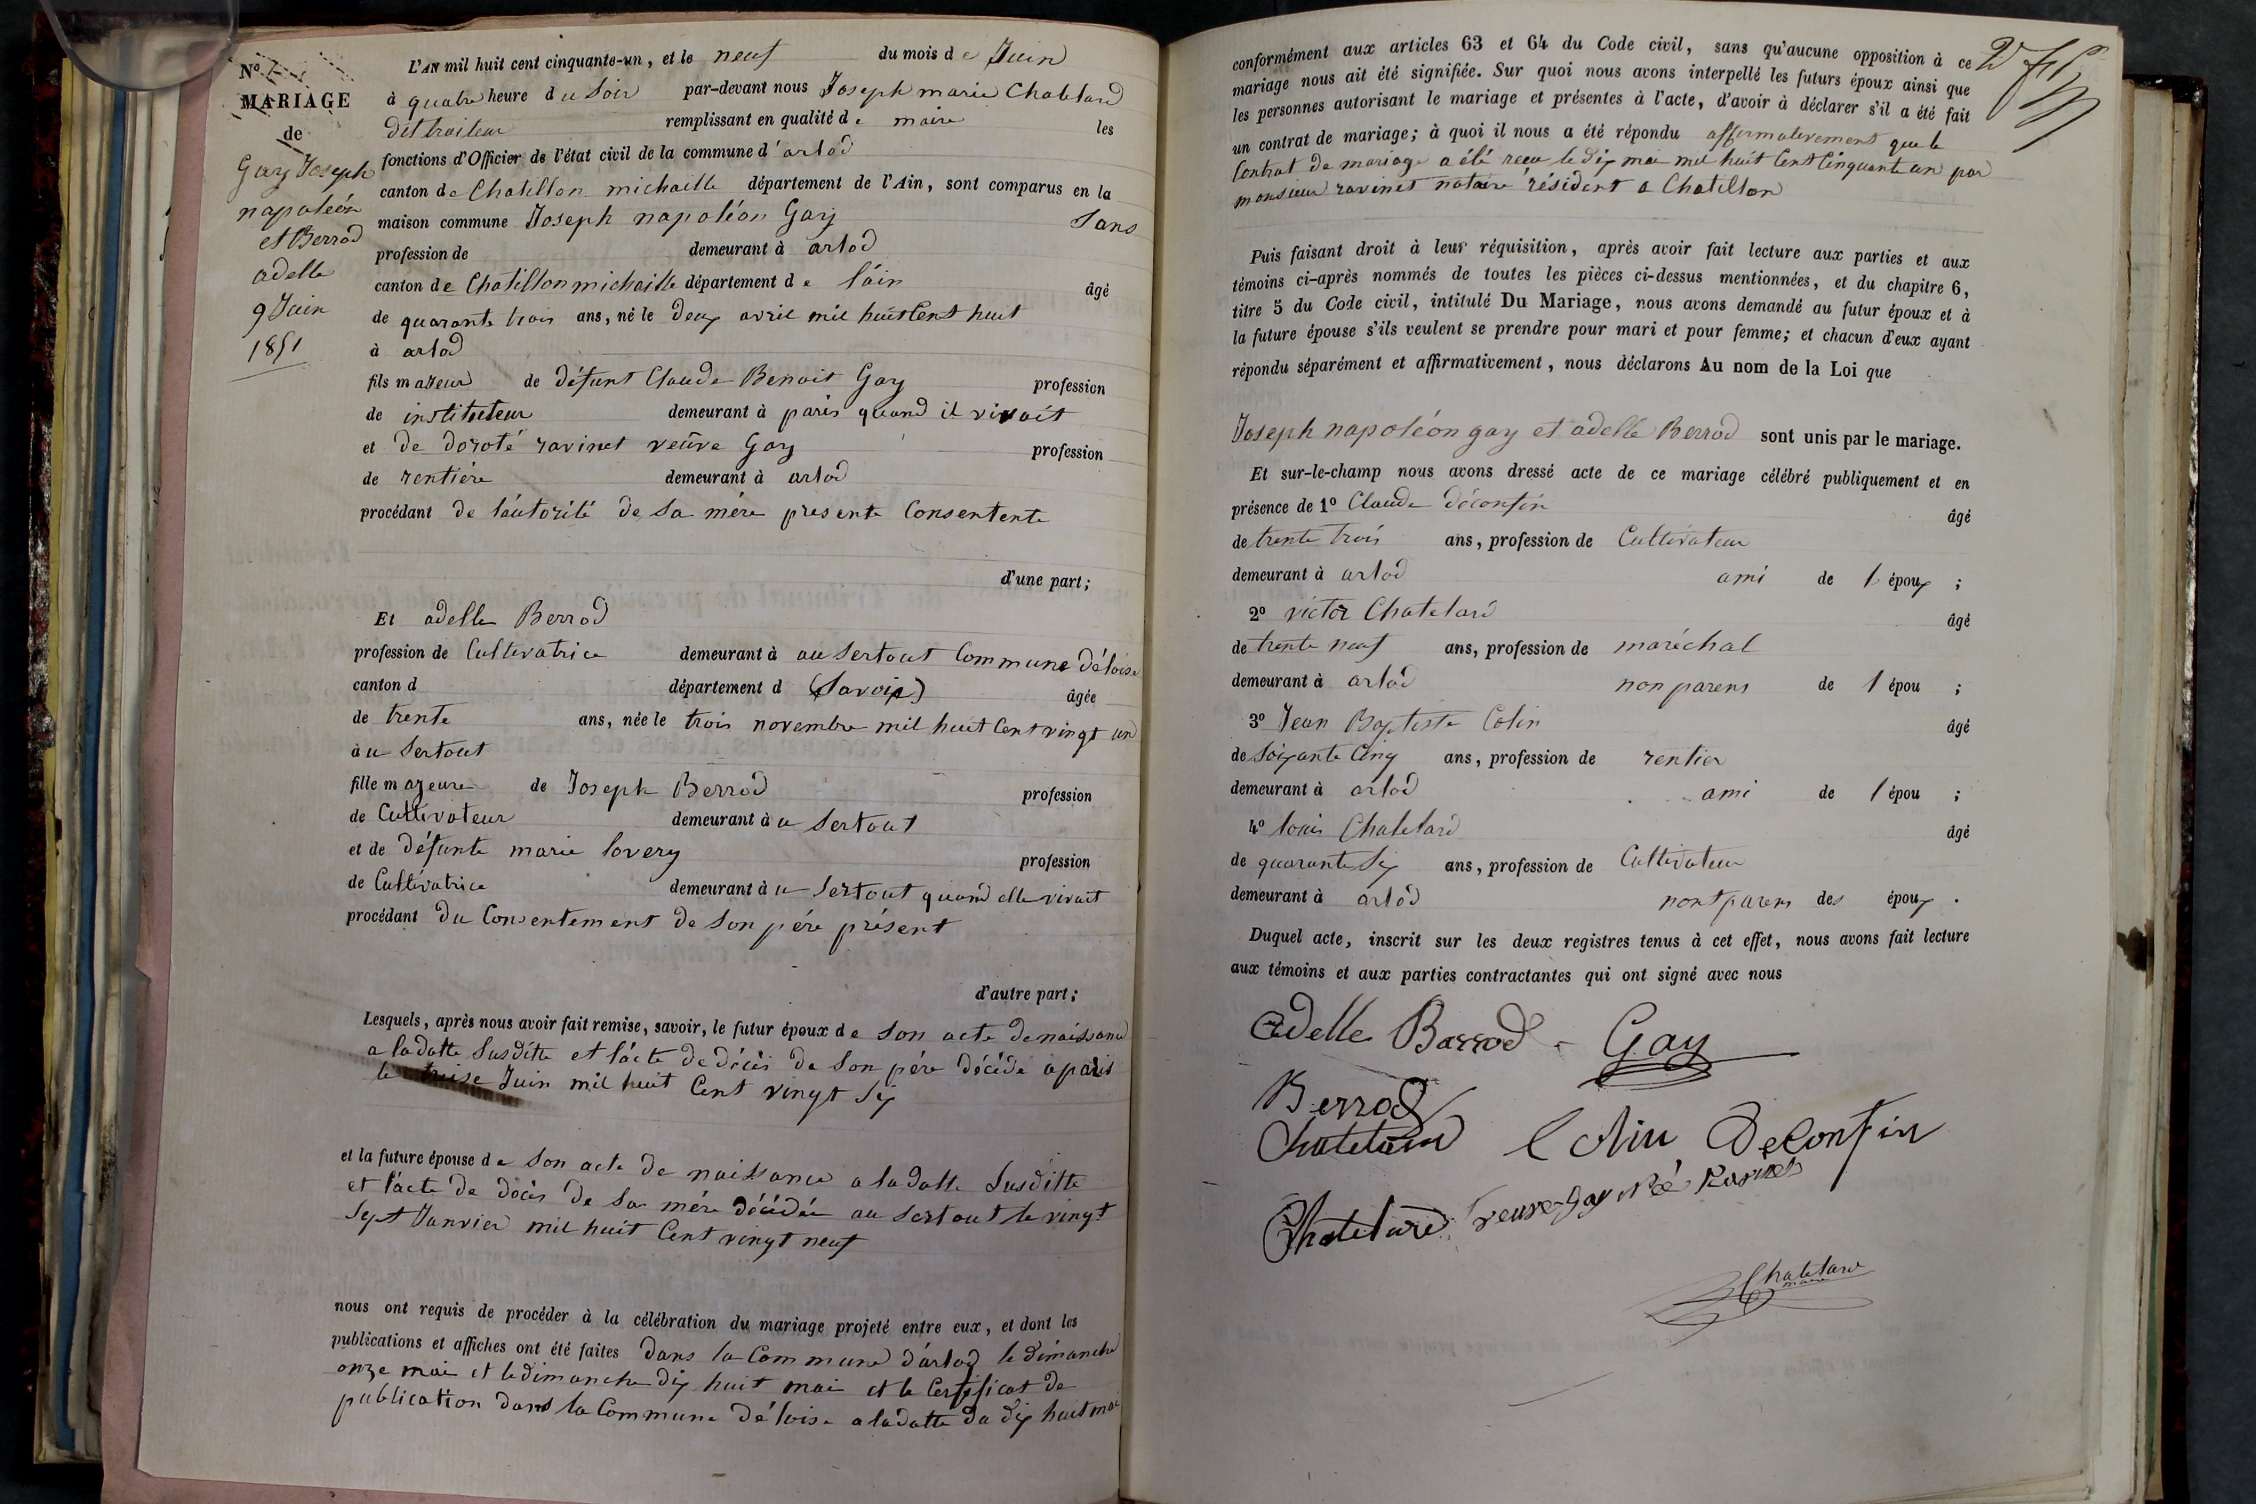 N°
MARIAGE
de
Gay Joseph
napoléon
et Berrod
adelle
9 Juin
1851
L'AN mil huit cent cinquante-un, et le neuf du mois de Juin
à quatre heure du Soir par-devant nous Joseph marie Chatelard
dit traiteur remplissant en qualité de maire les
fonctions d'Officier de l'état civil de la commune d'arlod
canton de Chatillon michaille département de l'Ain, sont comparus en la
maison commune Joseph napoléon Gay Sans
profession de demeurant à arlod
canton de Chatillon michaille département de l'áin âgé
de quarante trois ans, né le deux avril mil huit Cent huit
à arlod
fils majeur de défunt Claude Benoit Gay profession
de instituteur demeurant à paris quand il vivoit
et de doroté ravinet veûve Gay profession
de rentière demeurant à arlod
procédant de l'áutorité de Sa mére presente Consentente
d'une part;
Et adelle Berrod
profession de Cultivatrice demeurant à au Sertout Commune d'éloise
canton d département d (Savoie) âgée
de trente ans, née le trois novembre mil huit Cent vingt un
àu Sertout
fille majeure de Joseph Berrod profession
de Cultivateur demeurant àu Sertout
et de défunte marie lovery profession
de Cultivatrice demeurant àu Sertout quand elle vivait
procédant du Consentement de Son pére présent
d'autre part;
Lesquels, après nous avoir fait remise, savoir, le futur époux de Son acte de naissance
a la datte Susditte et l'ácte de décès de Son pére décédé a paris
le treise Juin mil huit Cent vingt Six
et la future épouse de Son acte de naissance a la datte Susditte
et l'ácte de décès de Sa mére décédée au Sertout le vingt
Sept Janvier mil huit Cent vingt neuf
nous ont requis de procéder à la célébration du mariage projeté entre eux, et dont les
publications et affiches ont été faites dans la Commune d'árlod le dimanche
onze mai et le dimanche dix huit mai et le Certificat de
publication dans la Commune d'éloise a la datte du dix huit mai
conformément aux articles 63 et 64 du Code civil, sans qu'aucune opposition à ce
mariage nous ait été signifiée. Sur quoi nous avons interpellé les futurs époux ainsi que
les personnes autorisant le mariage et présentes à l'acte, d'avoir à déclarer s'il a été fait
un contrat de mariage; à quoi il nous a été répondu affirmativement que le
Contrat de mariage a été reçu le dix mai mil huit Cent Cinquante un par
monsieur ravinet notaire résident a Chatillon
Puis faisant droit à leur réquisition, après avoir fait lecture aux parties et aux
témoins ci-après nommés de toutes les pièces ci-dessus mentionnées, et du chapitre 6,
titre 5 du Code civil, intitulé Du Mariage, nous avons demandé au futur époux et à
la future épouse s'ils veulent se prendre pour mari et pour femme; et chacun d'eux ayant
répondu séparément et affirmativement, nous déclarons Au nom de la Loi que
Joseph napoléon gay et adelle Berrod sont unis par le mariage.
Et sur-le-champ nous avons dressé acte de ce mariage célébré publiquement et en
présence de 1° Claude déconfin âgé
de trente trois ans, profession de Cultivateur
demeurant à arlod ami de l époux ;
2° victor Chatelard âgé
de trente neuf ans, profession de maréchal
demeurant à arlod non parens de l épou ;
3° Jean Baptiste Colin âgé
de Soixante Cinq ans, profession de rentier
demeurant à arlod ami de l épou ;
4° louis Chatelard âgé
de quarante Six ans, profession de Cultivateur
demeurant à arlod nont parens des époux .
Duquel acte, inscrit sur les deux registres tenus à cet effet, nous avons fait lecture
aux témoins et aux parties contractantes qui ont signé avec nous
Adelle Barrod Gay
Berrod
Chatelard Colin Deconfin
Chatelard veuve Gay Né Ravinet
Chatelard
maire